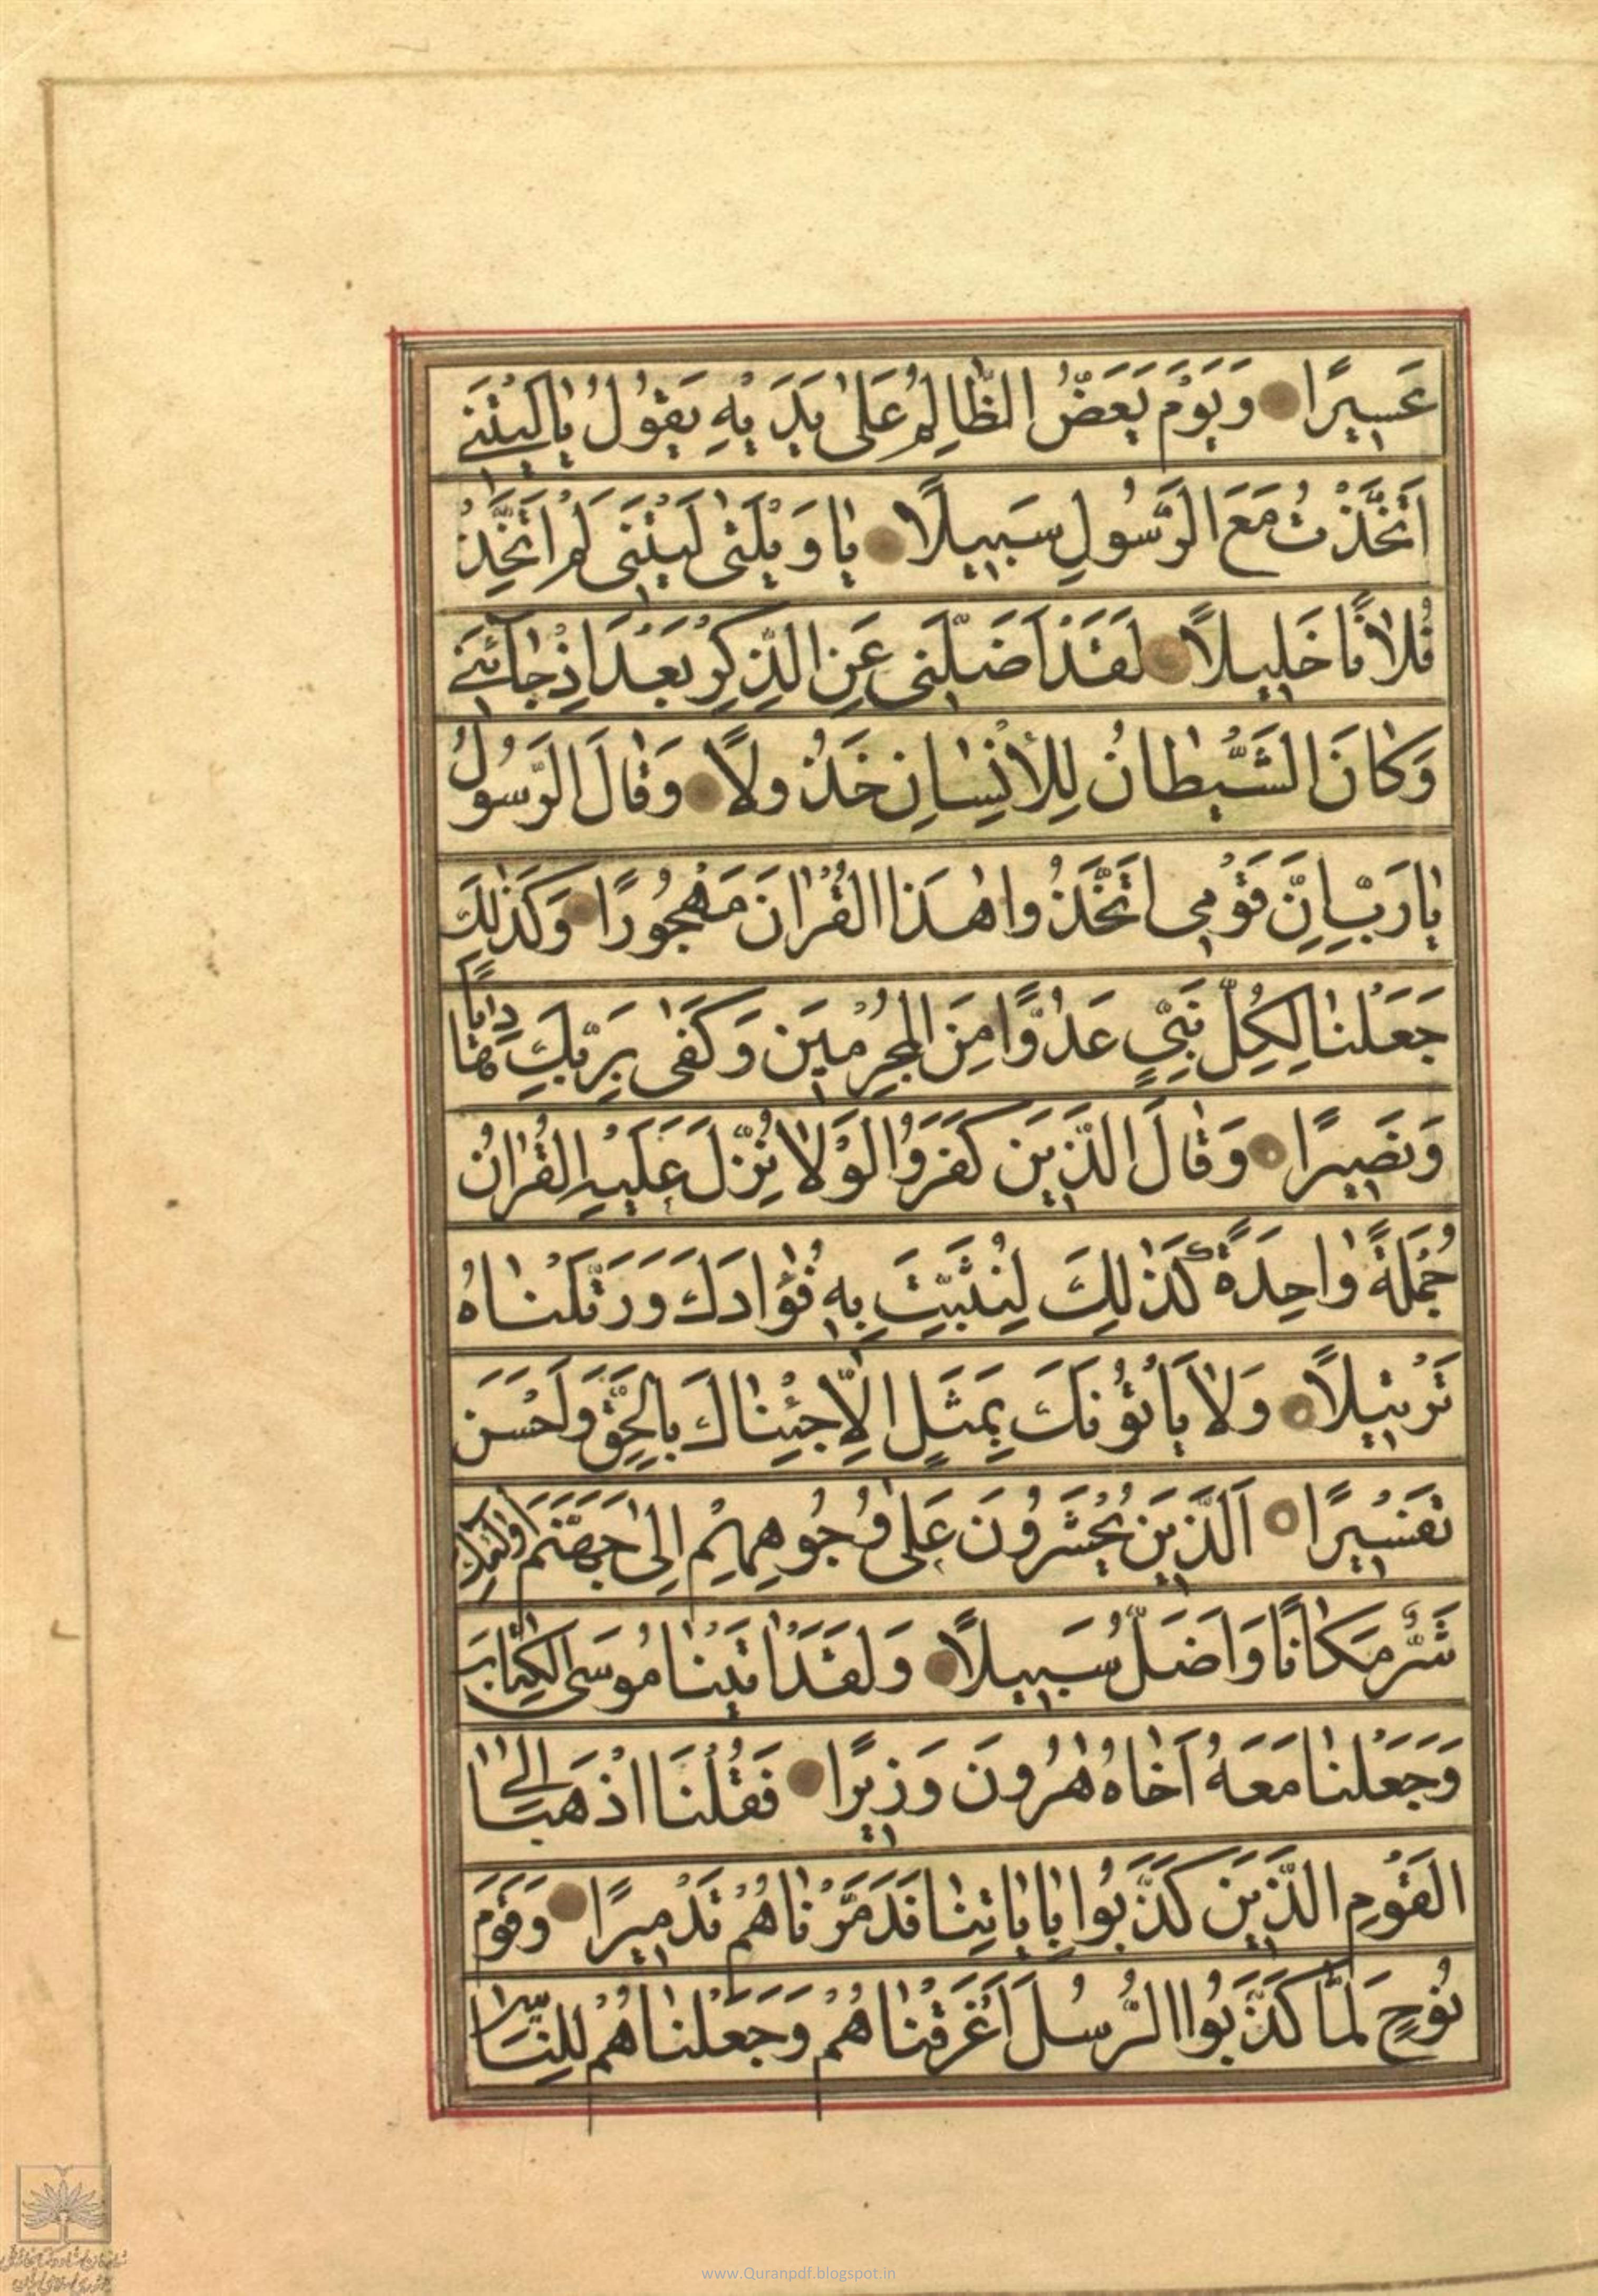 عَسِيرًا وَيَوْمَ يَعَضُّ الظَّالِمُ عَلىٰ يَدَيْهِ يَقُولُ يٰا لَيْتَنِي
اتَّخَذْتُ مَعَ الرَّسُولِ سَبِيلًا يٰا وَيْلَتىٰ لَيْتَنِي لَمْ اَتَّخِذْ
فُلٰانًا خَلِيلًا لَقَدْ اَضَلَّنِي عَنِ الذِّكْرِ بَعْدَ اِذْ جٰآئَنِي
وَكٰانَ الشَّيْطٰانُ لِلْاِنْسٰانِ خَذُولًا وَقٰالَ الرَّسُولُ
يٰا رَبِّ اِنَّ قَوْمِي اتَّخَذُوا هٰذَا الْقُرْاٰنَ مَهْجُورًا وَكَذٰلِكَ
جَعَلْنٰا لِكُلِّ نَبِيٍّ عَدُوًّا مِنَ الْمُجْرِمِينَ وَكَفىٰ بِرَبِّكَ هٰادِيًا
وَنَصِيرًا وَقٰالَ الَّذِينَ كَفَرُوا لَوْلٰا نُزِّلَ عَلَيْهِ الْقُرْاٰنُ
جُمْلَةً وٰاحِدَةً كَذٰلِكَ لِنُثَبِّتَ بِهِ فُؤٰادَكَ وَرَتَّلْنٰاهُ
تَرْتِيلًا وَلٰا يَأْتُونَكَ بِمَثَلٍ اِلّٰا جِئْنٰاكَ بِالْحَقِّ وَاَحْسَنَ
تَفْسِيرًا اَلَّذِينَ يُحْشَرُونَ عَلىٰ وُجُوهِهِمْ اِلىٰ جَهَنَّمَ اُولٰئِكَ
شَرٌّ مَكٰانًا وَاَضَلُّ سَبِيلًا وَلَقَدْ اٰتَيْنٰا مُوسَى الْكِتٰابَ
وَجَعَلْنٰا مَعَهُ اَخٰاهُ هٰرُونَ وَزِيرًا فَقُلْنَا اذْهَبٰا اِلىَ
الْقَوْمِ الَّذِينَ كَذَّبُوا بِاٰيٰاتِنٰا فَدَمَّرْنٰاهُمْ تَدْمِيرًا وَقَوْمَ
نُوحٍ لَمّٰا كَذَّبُوا الرُّسُلَ اَغْرَقْنٰاهُمْ وَجَعَلْنٰاهُمْ لِلنّٰاسِ
www.Quranpdf.blogspot.in